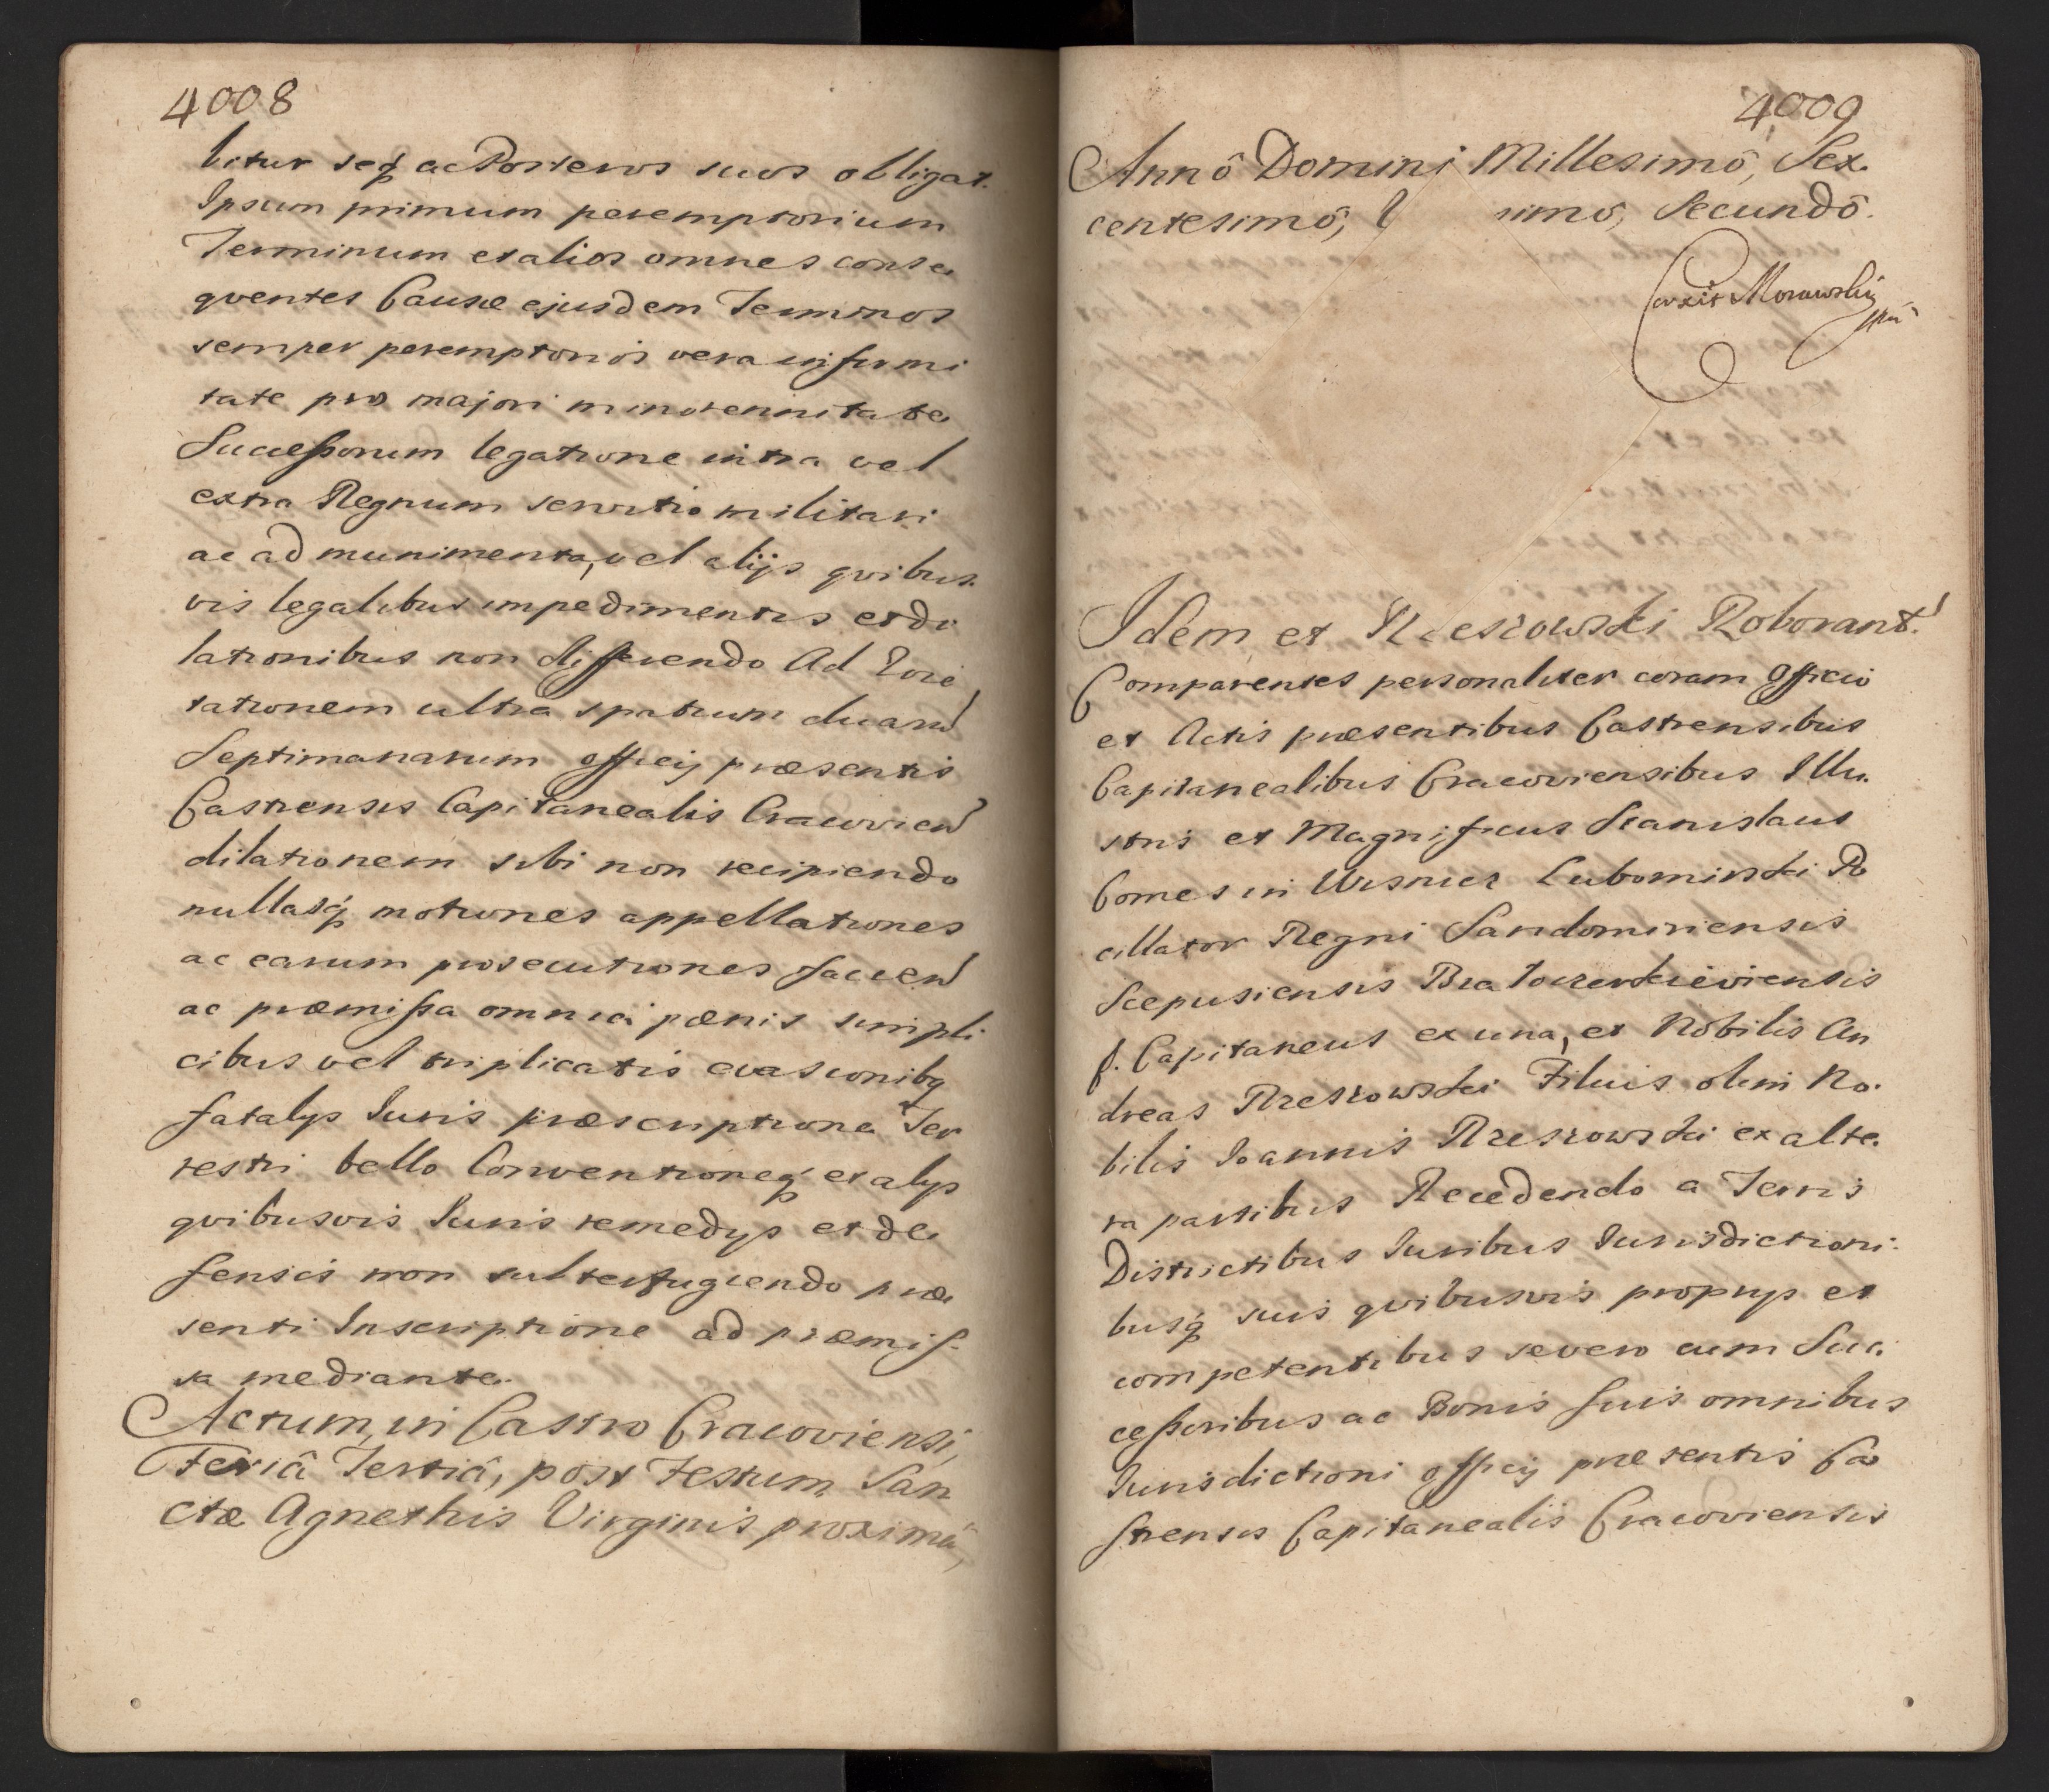 4008
bitur seq́ ac Posteros suos obligat.
Ipsum primum peremptorium
Terminum et alios omnes conse
qventes Causæ ejusdem Terminos
semper peremptorios vera infirmi
tate pro majori minorennitate
Successorum legatione intra vel
extra Regnum servitio militari
ac ad munimenta, vel alijs qvibus
vis legalibus impedimentis et di
lationibus non differendo Ad
tationem ultra spatium duar
Septimanarum officij præsentis
Castrensis Capitanealis Cracovien
dilationem sibi non recipiendo
nullasq́ motiones appellationes
ac earum prosecutiones facien
ac præmissa omnia pœnis simpli
cibus vel triplicatis evasionibq
fatalijs Iuris præscriptione Ter
restri bello Conventioneq́ et alijs
qvibusvis Iuris remedijs et de
fensis non subterfugiendo præ
senti Inscriptione ad præmis
sa mediante.
Actum, in Castro Cracoviensi,
Feriâ Tertiâ, post Festum San
ctæ Agnethis Virginis proximâ,
4009
Annô Domini Millesimô, Sex
centesimô, simô, Secundô.
Coxit Morawskÿ
mpa
Idem et Rzeszowski Roborant.
Comparentes personaliter coram Officio
et Actis præsentibus Castrensibus
Capitanealibus Cracoviensibus Illu
stris et Magnificus Stanislaus
Comes in Wisnicz Lubomirski Po
cillator Regni Sandomiriensis
Scepusiensis
f. Capitaneus ex una, et Nobilis An
dreas Rzeszowski Filius olim No
bilis Ioannis Rzeszowski ex alte
ra partibus Recedendo a Terris
Districtibus Iuribus Iurisdictioni
busq́ suis qvibusvis proprijs et
competentibus se vero cum Suc
cessoribus ac Bonis suis omnibus
Iurisdictioni officij præsentis Ca
strensis Capitanealis Cracoviensis